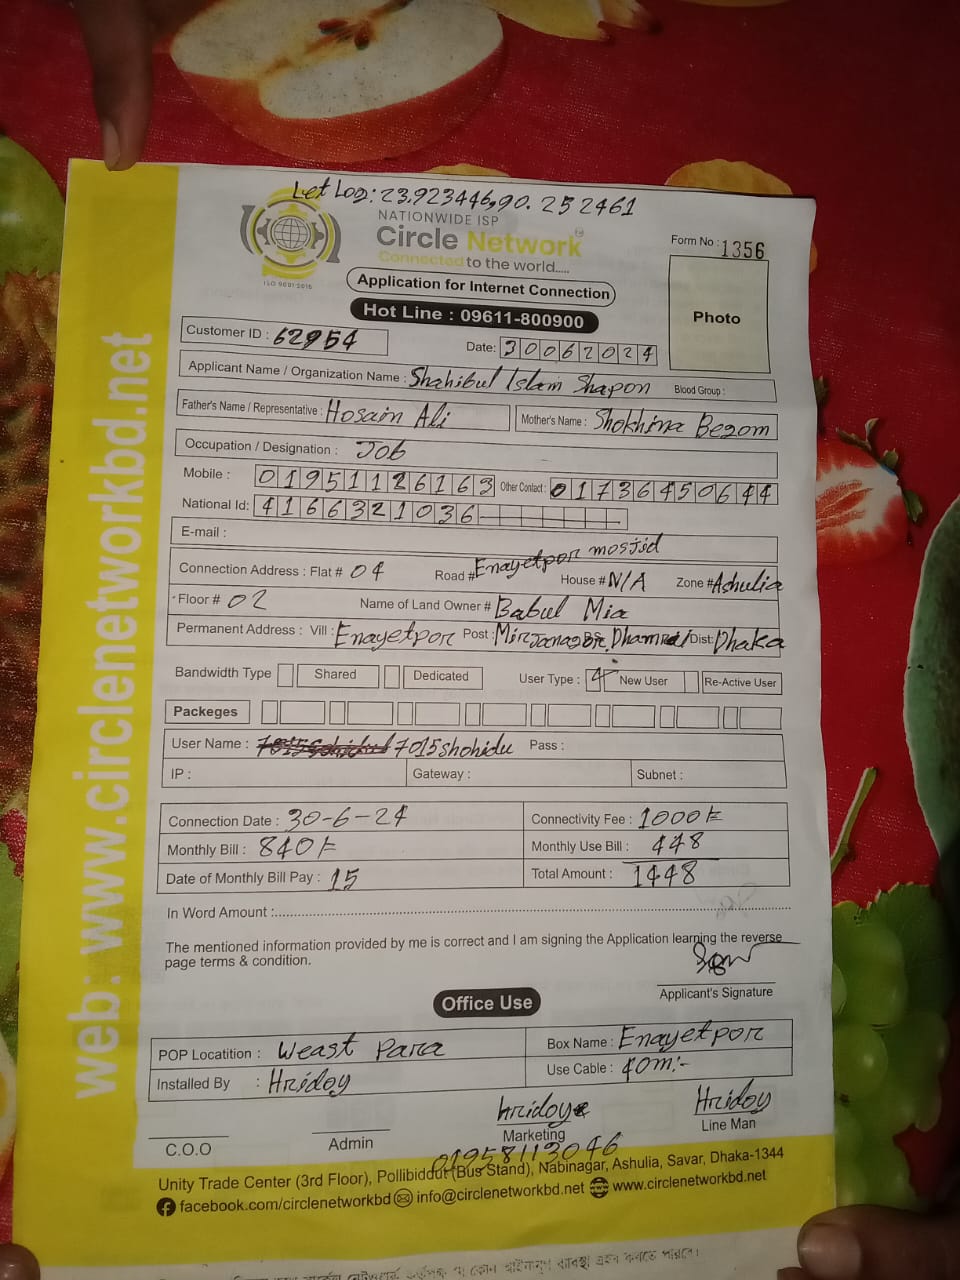 Let Log: 23.923446,90.252461
NATIONWIDE ISP
Circle Network
Connected to the world.....
ISO 9001:2015
Form No : 1356
Application for Internet Connection
Hot Line : 09611-800900
Photo
Customer ID : 62954
Date: 30062024
Applicant Name / Organization Name : Shahibul Islam Shapon Blood Group :
Father's Name / Representative : Hosain Ali Mother's Name : Shokhina Begom
Occupation / Designation : Job
Mobile : 01951126163 Other Contact : 01736450644
National Id: 4166321036
E-mail :
Connection Address : Flat # 04 Road # Enayetpor mosjid House # N/A Zone # Ashulia
Floor # 02 Name of Land Owner # Babul Mia
Permanent Address : Vill : Enayetpor Post : Dist: Dhaka
Bandwidth Type Shared Dedicated User Type : New User Re-Active User
Packeges
User Name : 7015shohidu Pass :
IP : Gateway : Subnet :
Connection Date : 30-6-24 Connectivity Fee : 1000/=
Monthly Bill : 840/= Monthly Use Bill : 448
Date of Monthly Bill Pay : 15 Total Amount : 1448
In Word Amount :
The mentioned information provided by me is correct and I am signing the Application learning the reverse
page terms & condition.
Applicant's Signature
Office Use
POP Locatition : Weast Para Box Name : Enayetpor
Installed By : Hridoy Use Cable : 40m:-
Hridoy Hridoy
C.O.O Admin Marketing Line Man
01958113046
Unity Trade Center (3rd Floor), Pollibiddut (Bus Stand), Nabinagar, Ashulia, Savar, Dhaka-1344
facebook.com/circlenetworkbd info@circlenetworkbd.net www.circlenetworkbd.net
web: www.circlenetworkbd.net